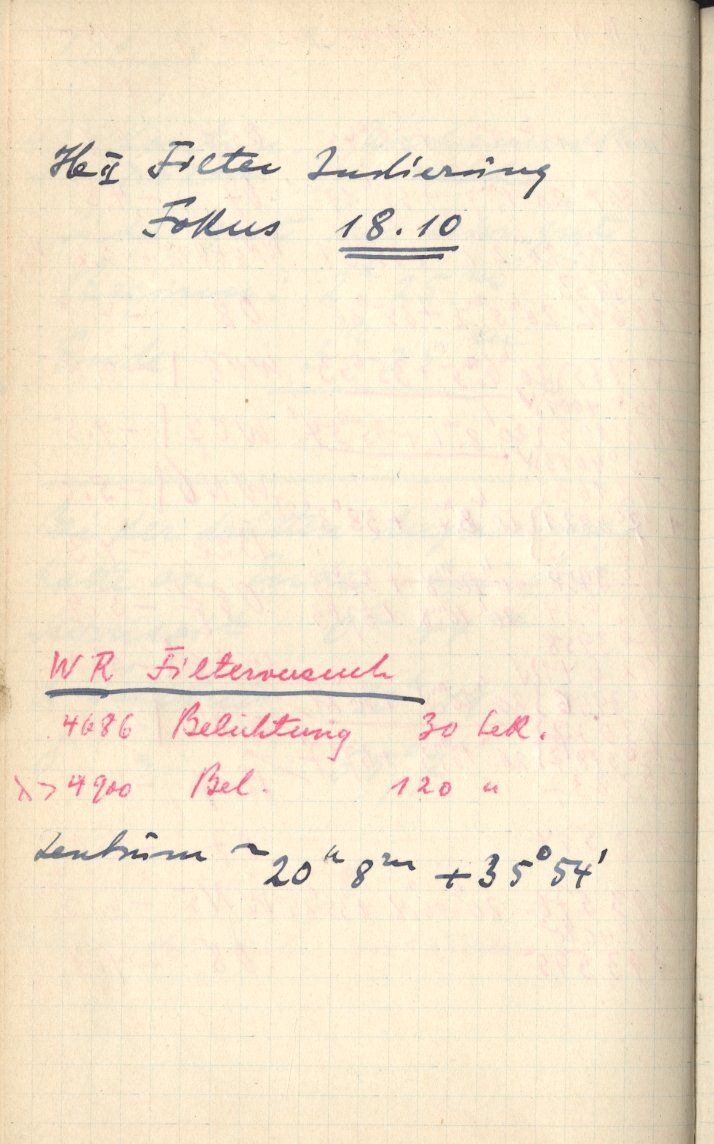 He II Filter Indierung
Fokus 18.10
WR Filterversuch
4686 Belichtung 30 Sek.
λ > 4900 Bel. 120 "
Zentrum ~ 20h 8m + 35° 54'